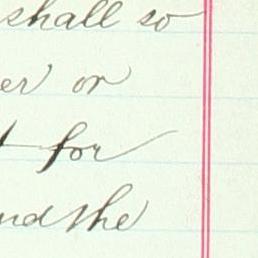 shall so
er or
t for
nd the